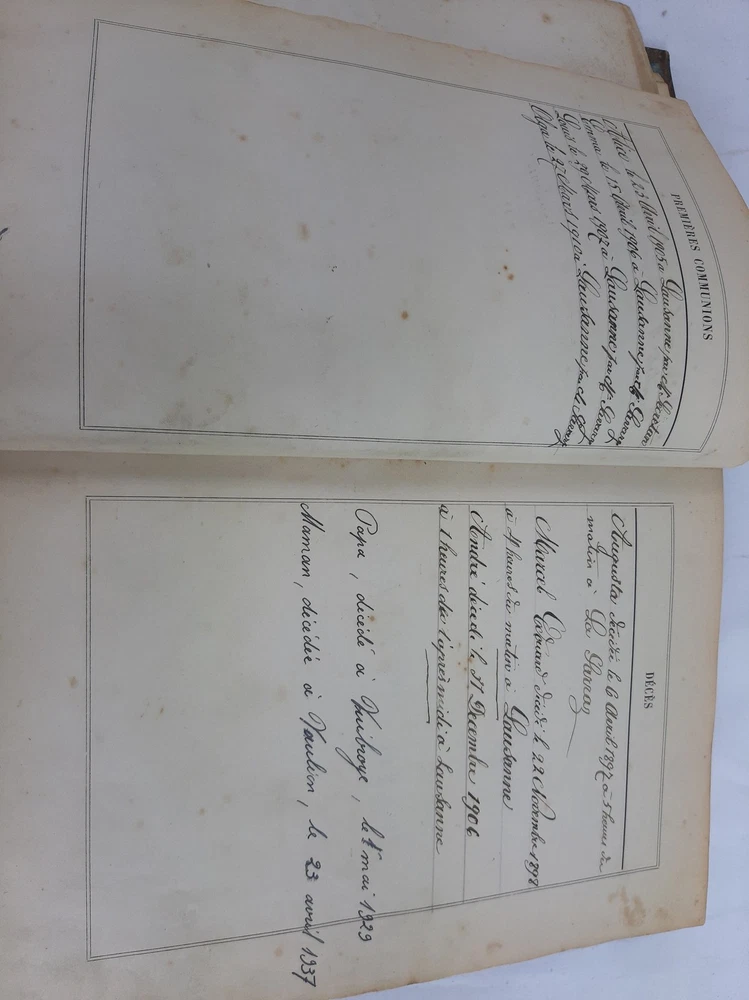 PREMIÈRES COMMUNIONS
Alice le 23 Avril 1905 à Lausanne par Mr
Emma le 15 Avril 1906 à Lausanne par Mr
Louis le 24 Mars 1907 à Lausanne par Mr
Olga le 27 Mars 1910 à Lausanne par Mr
DÉCÈS
Augusta décédé le 6 Avril 1897 à 5 heures du
matin à La Sarraz
Marcel Edouard décédé le 22 Novembre 1898
à 4 heures du matin à Lausanne
André décédé le 31 Decembre 1906
à 1 heures de l'après midi à Lausanne
Papa, décédé à Vuibroye, le 1er mai 1929
Maman, décédée à Vaulion, le 23 avril 1937